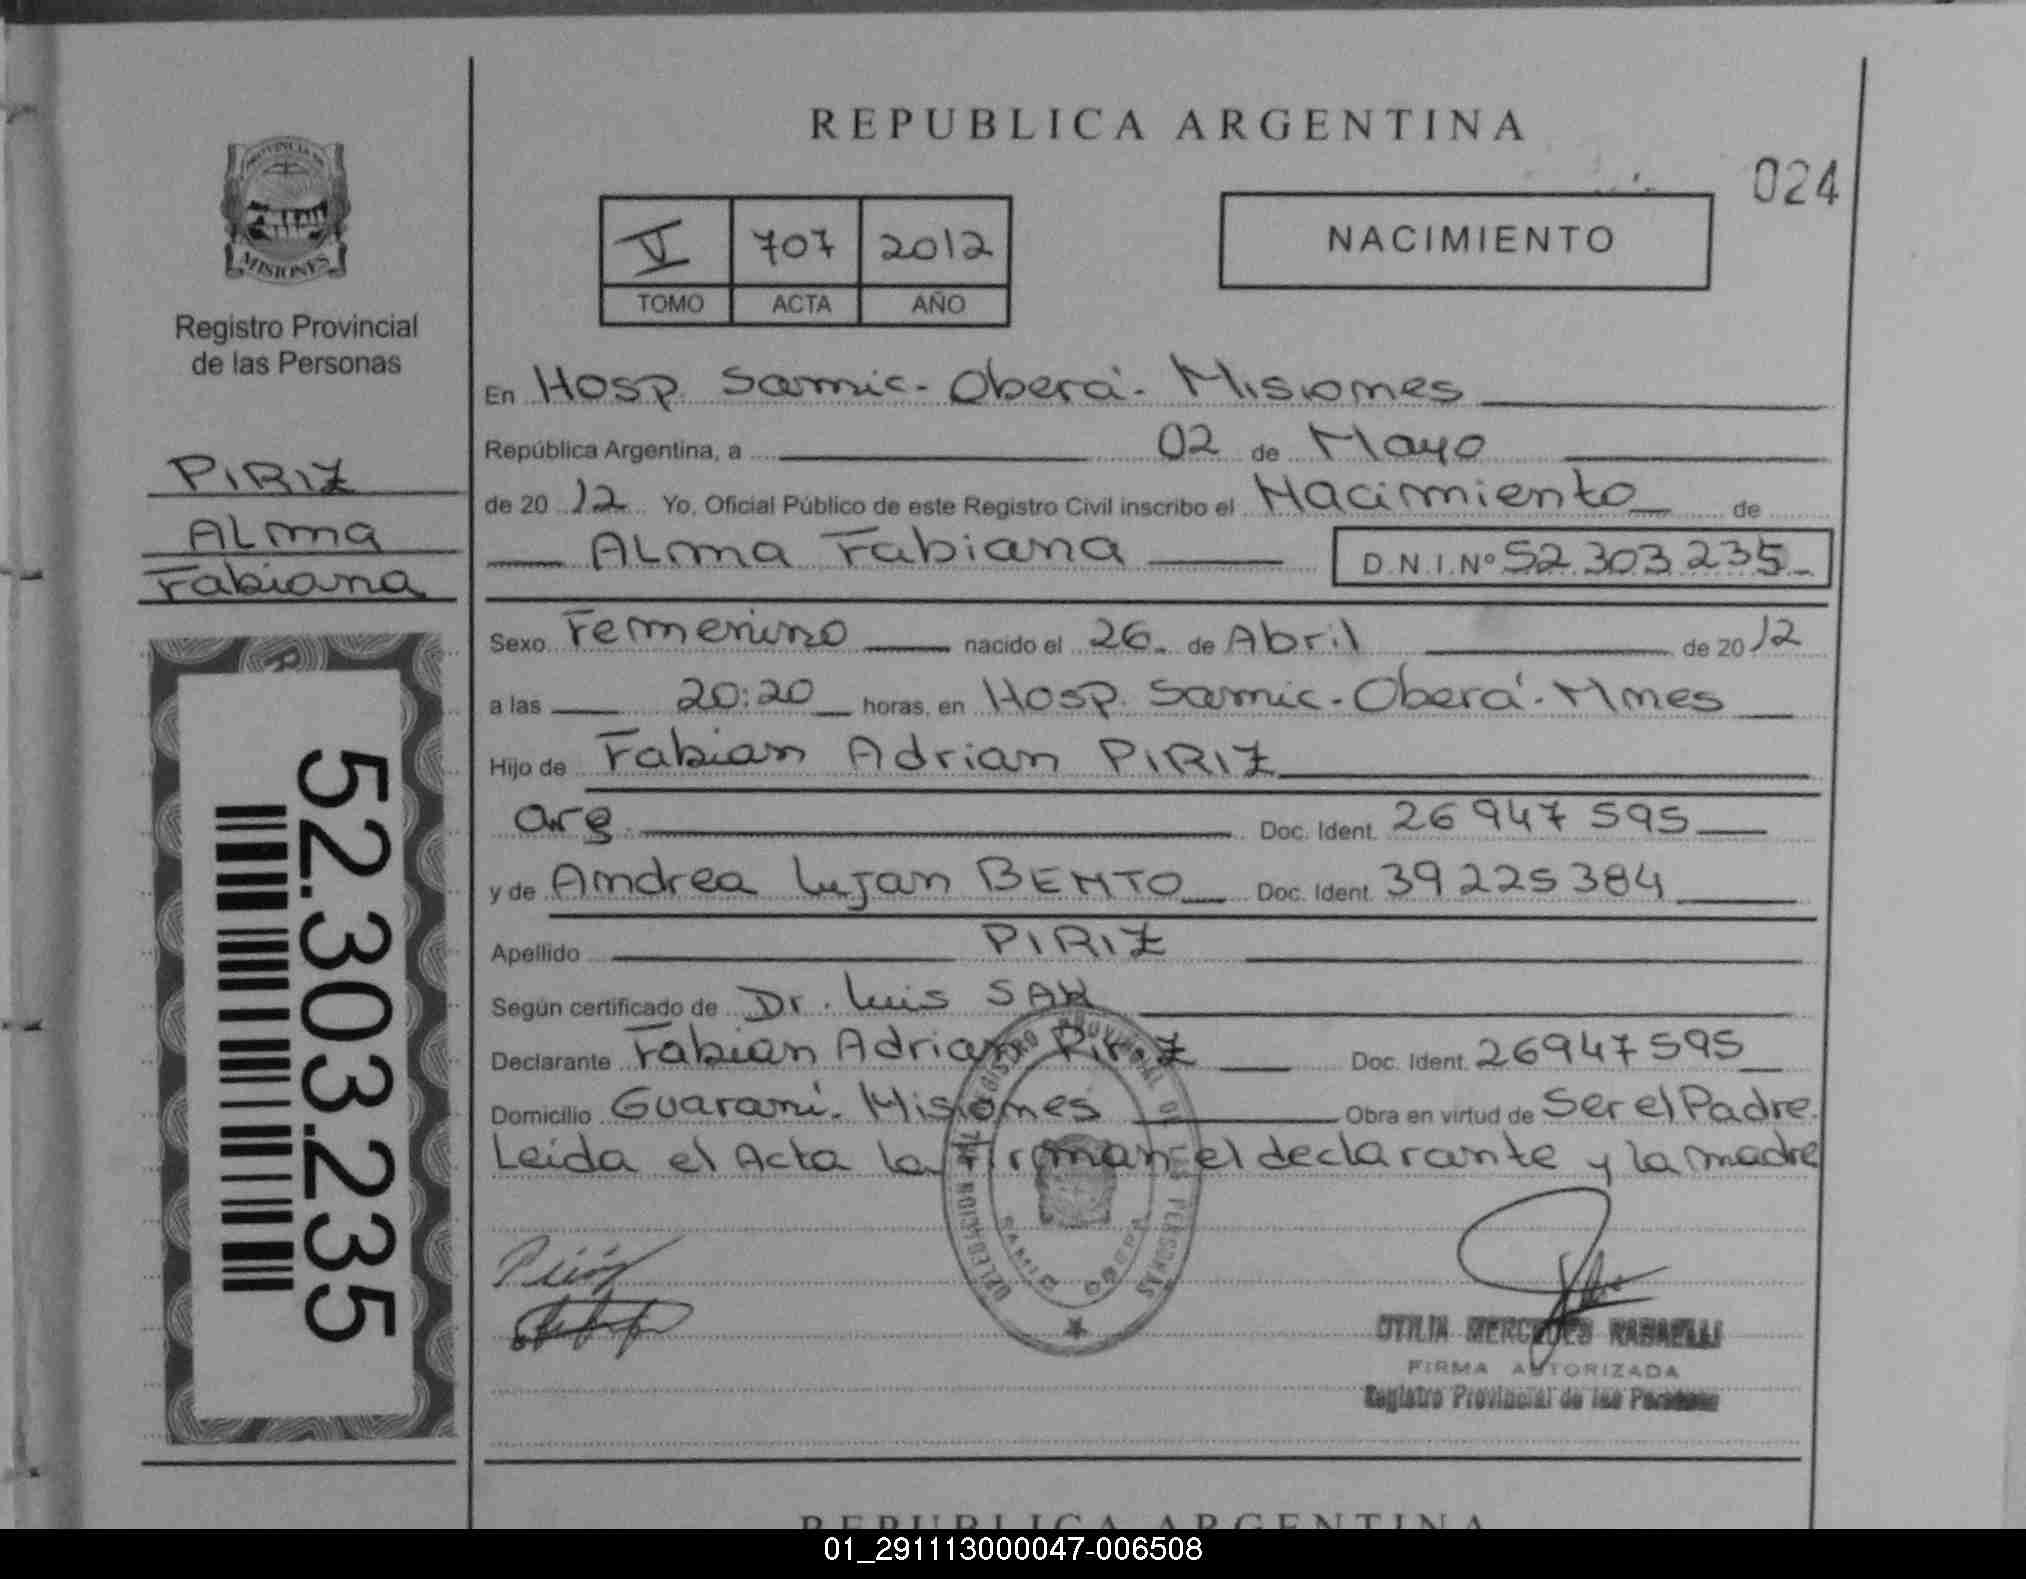 REPUBLICA ARGENTINA
024
PROVINCIA DE
MISIONES
Registro Provincial
de las Personas
V 707 2012
TOMO ACTA AÑO
NACIMIENTO
PIRIZ
ALma
Fabiana
52.303.235
En Hosp. Samic - Oberá - Misiones
República Argentina, a 02 de Mayo
de 20 12 Yo, Oficial Público de este Registro Civil inscribo el Nacimiento de
ALma Fabiana D.N.I.Nº 52.303.235
Sexo Femenino nacido el 26 de Abril de 20 12
a las 20:20 horas, en Hosp. Samic - Oberá - Mnes
Hijo de Fabian Adrian PIRIZ
arg. Doc. Ident. 26947595
y de Andrea Lujan BENTO Doc. Ident. 39225384
Apellido PIRIZ
Según certificado de Dr. Luis
Declarante Fabian Adrian Piriz Doc. Ident. 26947595
Domicilio Guaraní. Misiones Obra en virtud de Ser el Padre.
Leida el Acta la firman el declarante y la madre
REGISTRO PROVINCIAL DE LAS PERSONAS
DELEGACION
SAMIC OBERA
Piriz
OTILIA MERCEDES
FIRMA AUTORIZADA
Registro Provincial de las Personas
REPUBLICA ARGENTINA
01_291113000047-006508